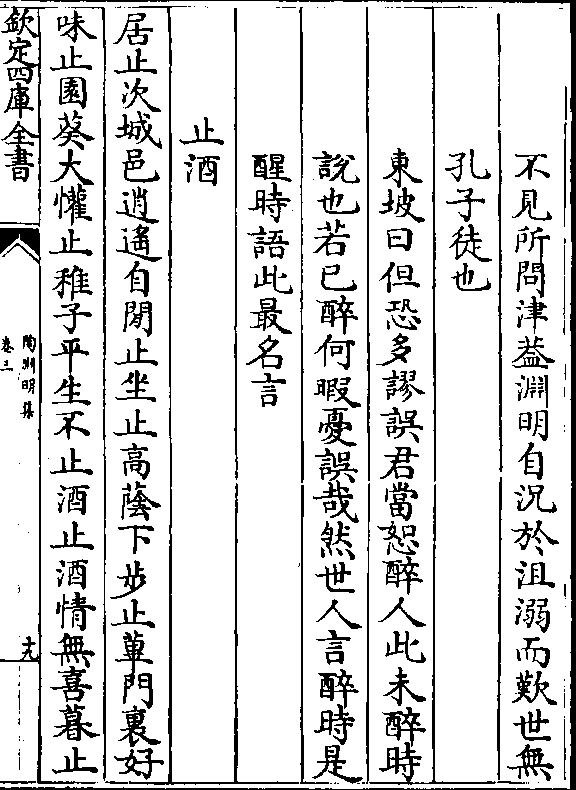 不見所問津葢淵明自况於沮溺而歎世無
孔子徒也
東坡曰但恐多謬誤君當恕醉人此未醉時
說也若已醉何暇憂誤哉然世人言醉時是
醒時語此最名言
止酒
居止次城邑逍遙自閒止坐止髙蔭下步止蓽門裏好
味止園葵大懽止稚子平生不止酒止酒情無喜暮止
欽定四庫全書
陶淵明集
卷三
十九